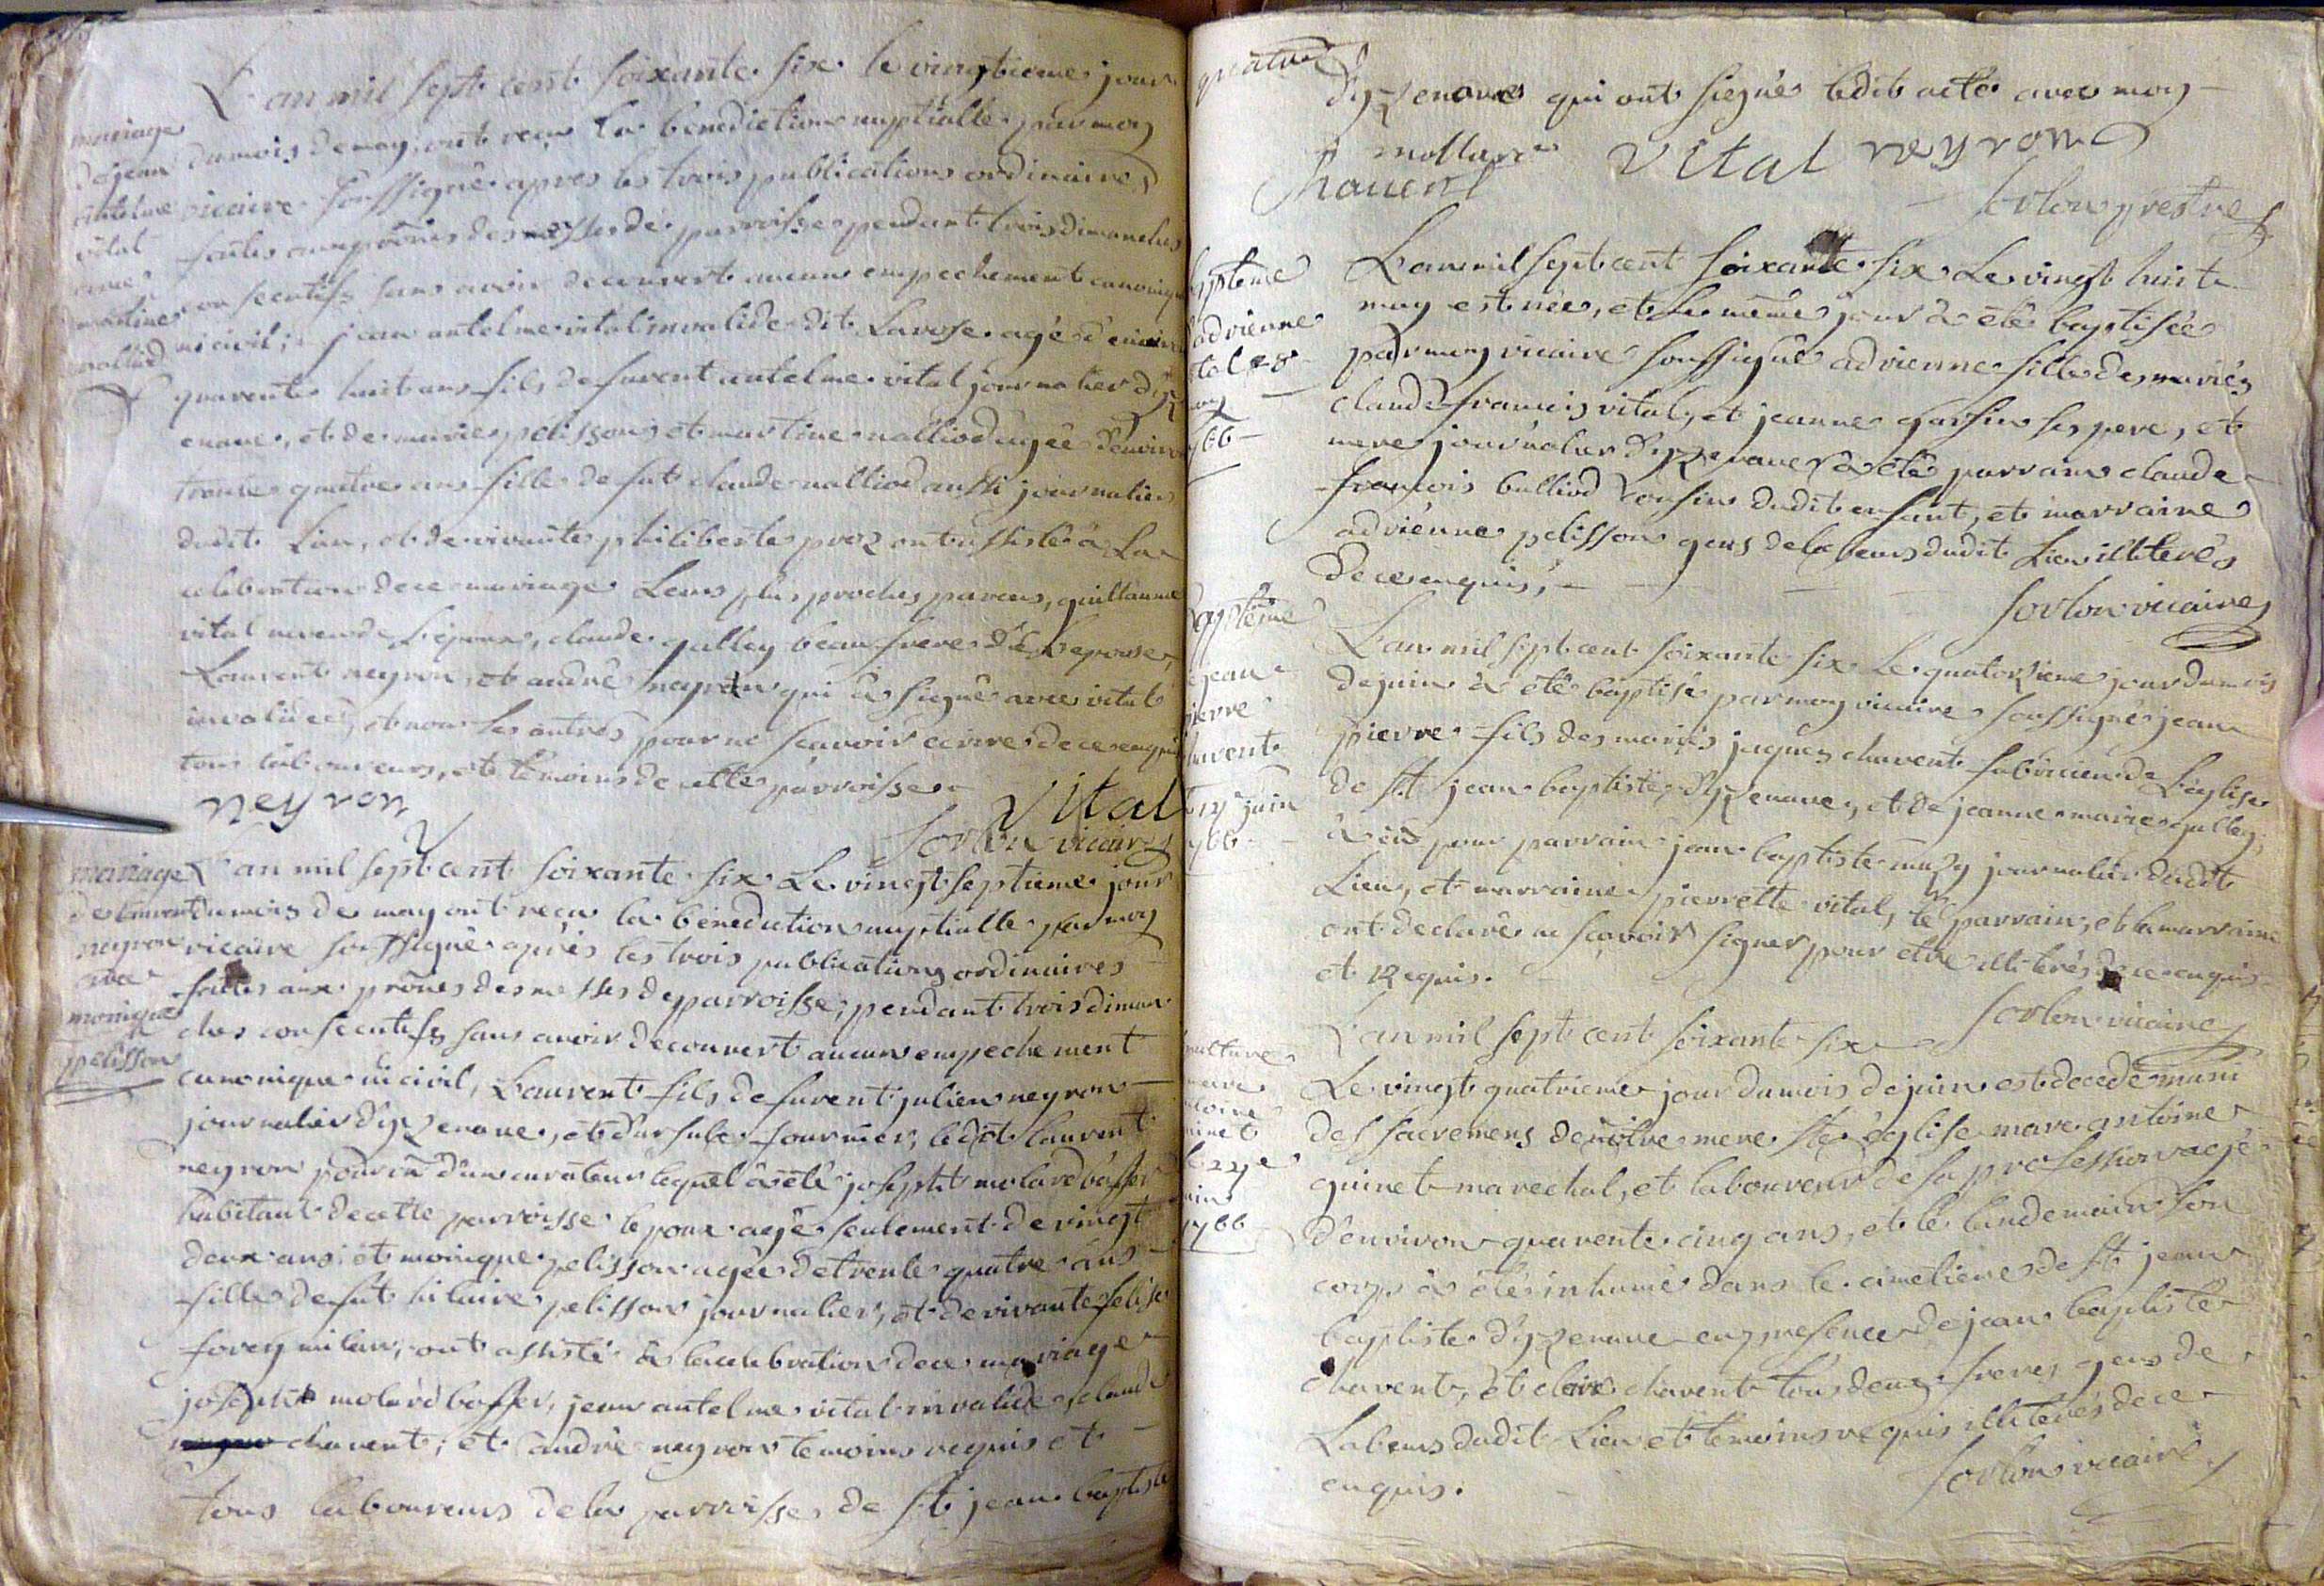 L'an mil sept cent soixante six le vingtieme jour
mariage
de jean
antelme
vital
avec
martine
nalliod
du mois de may, ont reçu la benediction nuptialle par moy
vicaire soussigné apres les trois publications ordinaires
faites aux prônes des messes de parroisse pendant trois dimanches
consecutifs sans avoir decouvert aucun empechement canonique
ni civil; jean antelme vital invalide dit Larose agé d'environ
quarente huit ans fils de furent antelme vital journalier d'yz
enave, et de marie pelisson, et martine nalliod agée d'environ
trente quatre ans fille de fut claude nalliod aussi journalier
dudit Lieu, et de vivante philiberte proz ont assisté à La
celebration de ce mariage Leurs plus proches parens, guillaume
vital neveu de L'epoux, claude galley beau frere de L'epouse,
Laurent neyron, et andré neyron qui a signé avec vital
invalide, et non les autres pour ne sçavoir écrire de ce enquis
tous laboureurs, et témoins de cette parroisse
neyron
Vital
Sorlon vicaire
mariage
de Laurent
neyron
avec
monique
pelisson
L'an mil sept cent soixante six Le vingt septieme jour
du mois de may ont reçu la bénédiction nuptialle par moy
vicaire soussigné après les trois publications ordinaires
faites aux prônes des messes de parroisse, pendant trois diman
ches consecutifs sans avoir decouvert aucun empechement
canonique ni civil, Laurent fils de furent julien neyron
journalier d'yzenave, et d'ursule fournier, ledit laurent
neyron pourvû d'un curateur lequel a été joseph molard boffer
habitant de cette parroisse l'epoux agé seulement de vingt
deux ans; et monique pelisson agée de trente quatre ans
fille de fut hilaire pelisson journalier, et de vivante felise
forey ont assisté à la celebration de ce mariage
joseph molard boffer, jean antelme vital invalide, claude
chavent; et andré neyron temoins requis et
tous laboureurs de la parroisse de st jean baptiste
d'yzenave qui ont signé ledit acte avec moy
mollard
Chavent
Vital neyron
Sorlon prestre
bapteme
d'adrienne
vital 28
may
1766
L'an mil sept cent soixante six Le vingt huit
may est née, et le même jour a été baptisée
par moy vicaire soussigné adrienne fille des mariés
claude françois vital, et jeanne garsin ses pere, et
mere journalier d'yzenave a été parrain claude
françois balliod cousin dudit enfant, et marraine
adriénne pelisson gens de labeurs dudit Lieu illiterés
de ce enquis,
Sorlon vicaire
Bapteme
de jean
pierre
chavent
14e juin
1766
L'an mil sept cent soixante six Le quatorsieme jour du mois
de juin a été baptisé par moy vicaire soussigné jean
pierre fils des mariés jaques chavent fabricien de L'eglise
de st jean baptiste d'yzenave, et de jeanne marie galley,
a eû pour parrain jean baptiste journalier dudit
Lieu, et marraine pierrette vital, le parrain, et la marraine
ont declaré ne sçavoir signer pour etre illiterés de ce enquis
et Requis.
Sorlon vicaire
sepulture
marc
antoine
guinet
24e
juin
1766
L'an mil sept cent soixante six
Le vingt quatrieme jour du mois de juin est decedé muni
des sacremens de notre mere ste eglise marc antoine
guinet marechal, et laboureur de sa profession agé
d'environ quarente cinq ans, et le landemain son
corps a été inhumé dans le cimetiere de st jean
baptiste d'yzenave en presence de jean baptiste
chavent, et claire chavent tous deux freres gens de
Labeurs dudit Lieu et temoins requis illiterés de ce
enquis.
Sorlon vicaire